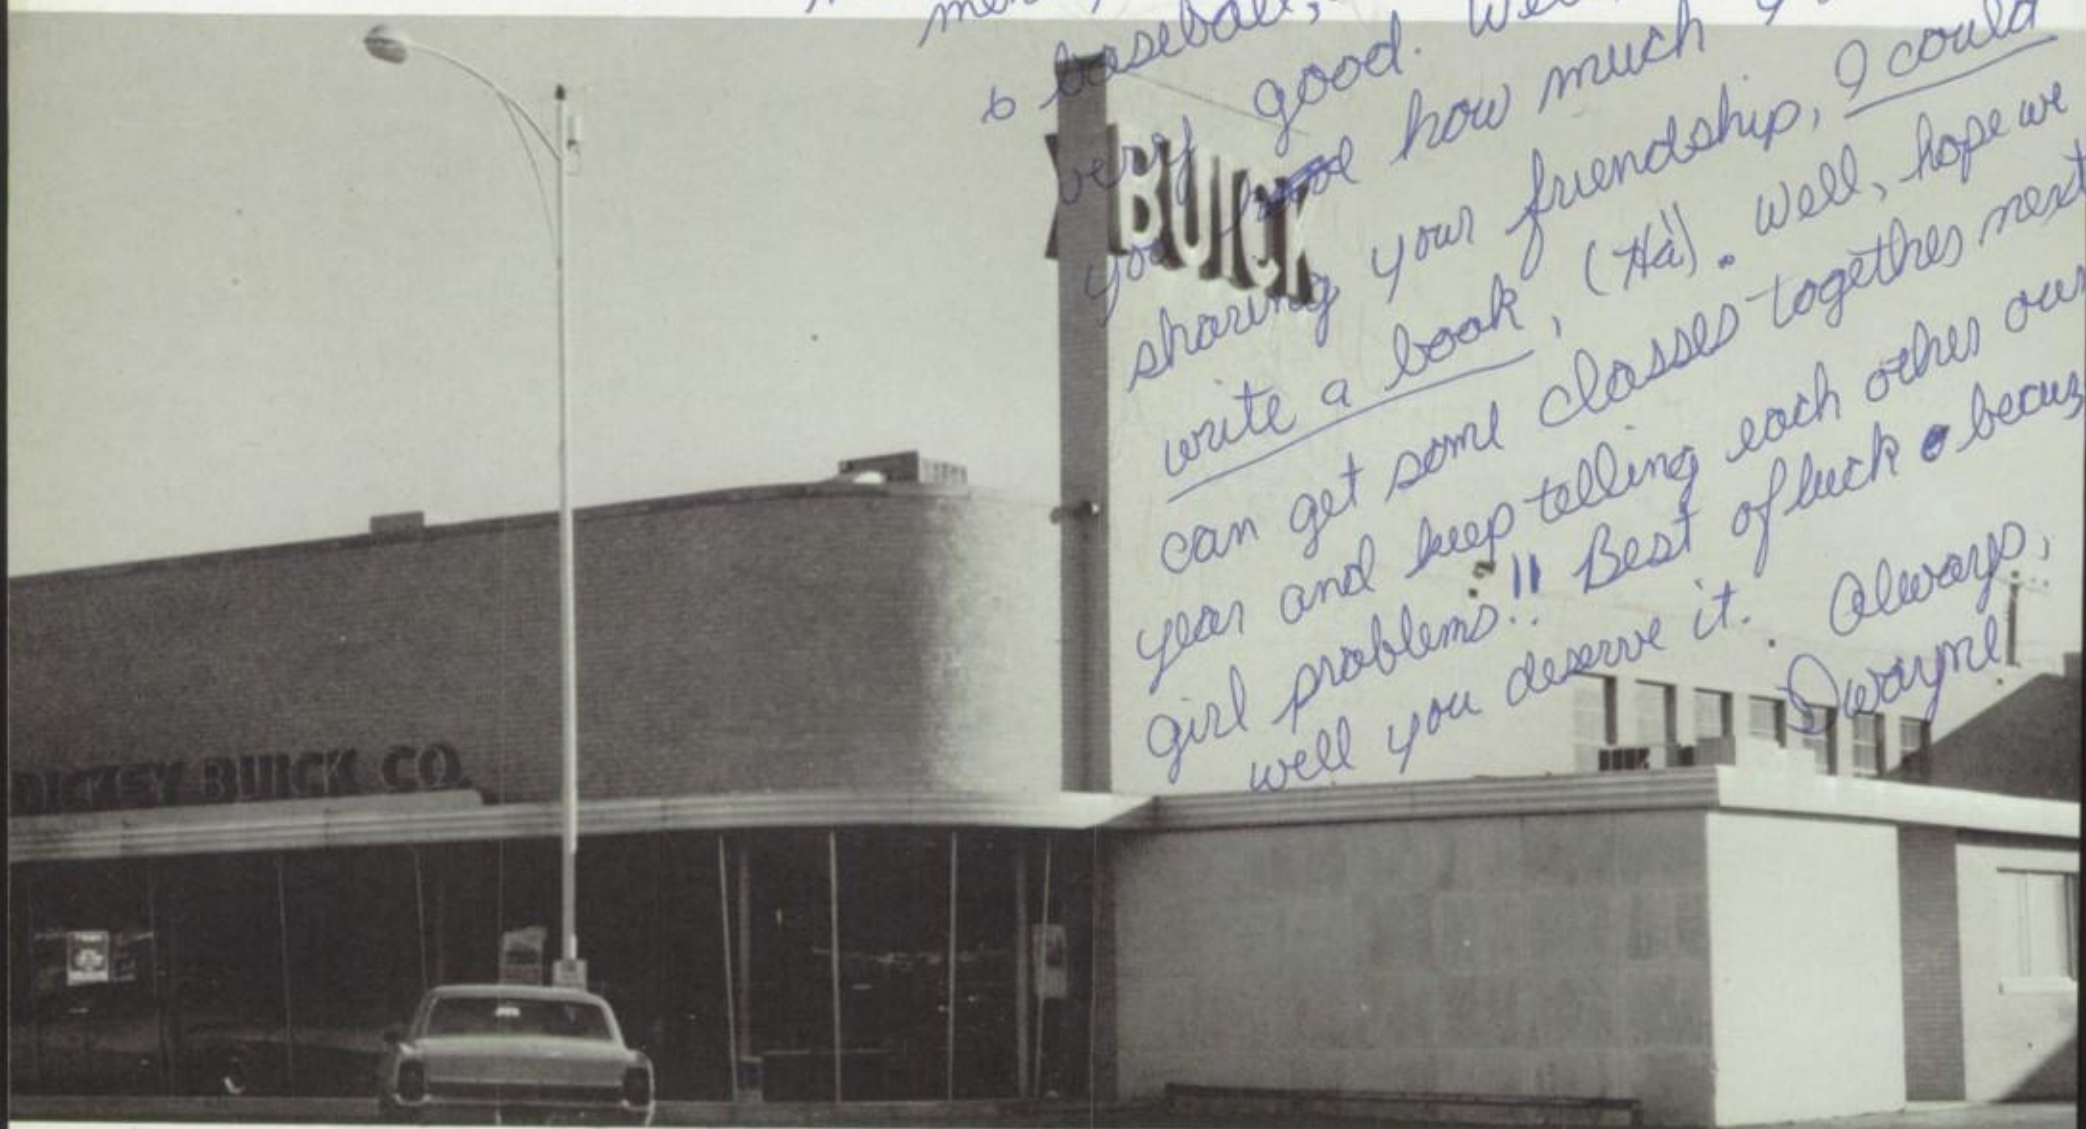 to baseball,
very good. Well
you how much
sharing your friendship, I could
write a book, (Ha). Well, hope we
can get some classes together next
year and keep telling each other our
girl problems!! Best of luck becuz
well you deserve it. Always,
Dwayne
BUICK
DICKEY BUICK CO.